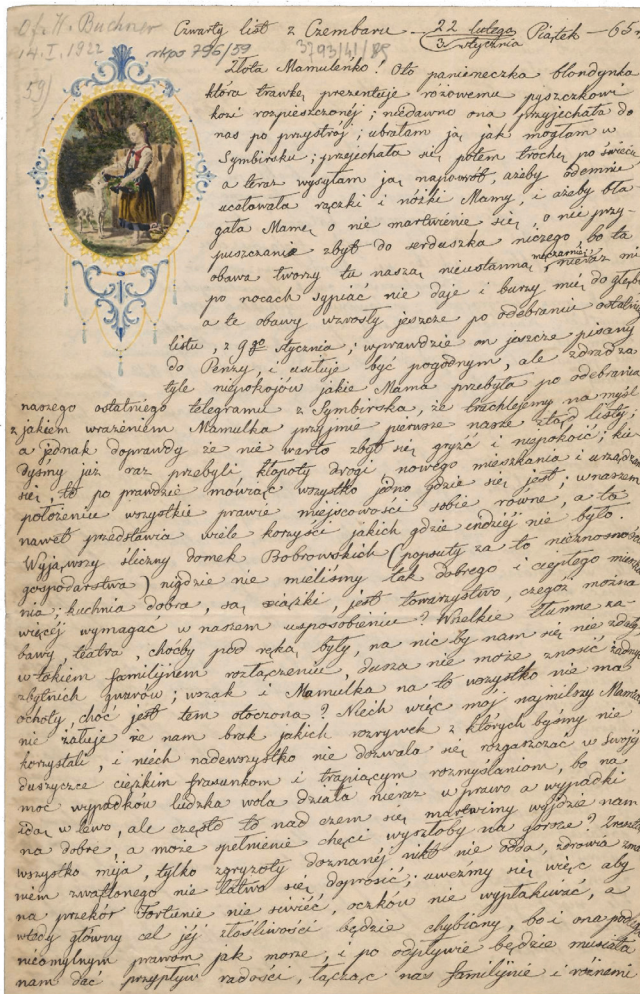 Of. K. Buchner
14. I. 1922 rkps 796/59 3793/41/
59)
Czwarty list z Czembaru — 22 lutego / 3 stycznia Piątek — 65 r
Złota Mamuleńko! Oto panieneczka blondynka
która trawkę prezentuje różowemu pyszczkowi
kozi rozpieszczonéj; niedawno ona przyjechała do
nas po przystrój; ubrałam ją jak mogłam w
Symbirsku; przejechała się potem trochę po świecie
a teraz wysyłam ją napowrót, ażeby odemnie
ucałowała rączki i nóżki Mamy, i ażeby bła
gała Mamę o nie martwienie się, o nie przy
puszczanie zbyt do serduszka niczego bo ta
obawa tworzy tu naszą nieustanną męczarnię; nieraz mi
po nocach sypiać nie daje i burzy mię do głębi
a te obawy wzrosły jeszcze po odebraniu ostatnie
listu, z 9go stycznia; wprawdzie on jeszcze pisany
do Penzy, i usiłuje być pogodnym, ale zdradza
tyle niepokojów jakie Mama przebyła po odebraniu
naszego ostatniego telegramu z Symbirska, że truchlejemy na myśl
z jakiem wrażeniem Mamulka przyjmie pierwsze nasze ztąd listy;
a jednak doprawdy że nie warto zbyt się gryźć i niepokoić; kie
dyśmy już raz przebyli kłopoty drogi, nowego mieszkania i urządzenia
się, to po prawdzie mówiąc wszystko jedno gdzie się jest; w naszem
położeniu wszystkie prawie miejscowości sobie równe, a ta
nawet przedstawia wiele korzyści jakich gdzie endziéj nie było.
Wyjąwszy śliczny domek Bobrowskich (popsuty za to nieznośnością
gospodarstwa) nigdzie nie mieliśmy tak dobrego i ciepłego mieszka
nia; kuchnia dobra, są xiążki, jest towarzystwo, czegoż można
więcéj wymagać w naszem usposobieniu? Wszelkie tłumne za-
bawy teatra, choćby pod ręką były, na nic by nam się nie zdały
w takiem familijnem rozłączeniu, dusza nie może znosić żadnych
zbytnich gwarów; wszak i Mamulka na to wszystko nie ma
ochoty, choć jest tem otoczona? Niech więc mój najmilszy Mamulek
nie żałuje że nam brak jakich rozrywek z których byśmy nie
korzystali, i niech nadewszystko nie dozwala się rozgaszczać w swojéj
duszyczce ciężkim frasunkom i trapiącym rozmyślaniom, bo na
moc wypadków ludzka wola działa nieraz w prawo a wypadki
idą w lewo, ale często to nad czem się martwimy wyjdzie nam
na dobre, a może spełnienie chęci wyszłoby na gorsze? Zresztą
wszystko mija, tylko zgryzoty doznanéj nikt nie odda, zdrowia
niem zwątlonego nie łatwo się doprosić; uweźmy się więc aby
na przekór Fortunie nie siwieć, oczków nie wypłakiwać, a
wtedy główny cel jéj złośliwości będzie chybiony, bo i ona podlega
nieomylnym prawom jak morze, i po odpływie będzie musiała
nam dać przypływ radości, łącząc nas familijnie i różnemi